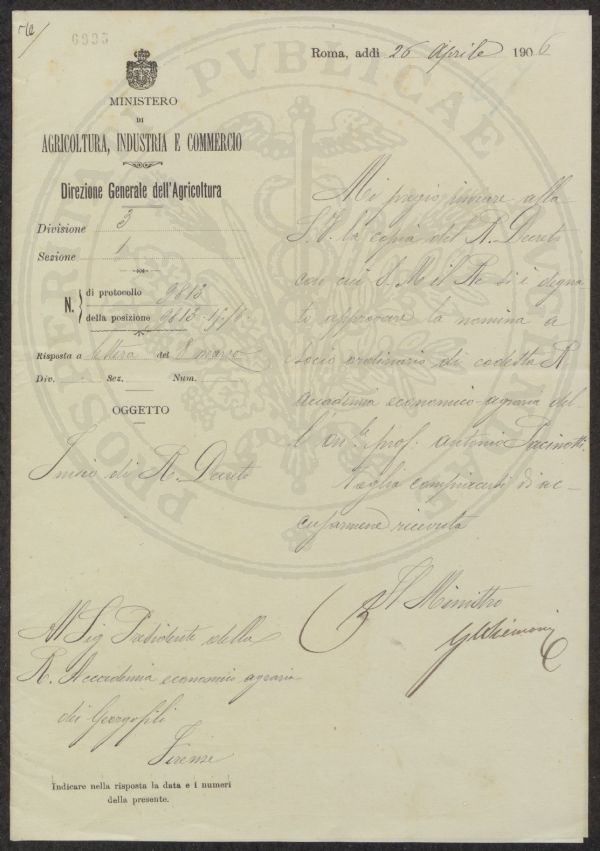 6995
Roma, addì 26 Aprile 1906
MINISTERO
DI
AGRICOLTURA, INDUSTRIA E COMMERCIO
Direzione Generale dell'Agricoltura
Divisione 3
Sezione 1
N.
di protocollo 9813
della posizione 9813
Risposta a lettera del 8 marzo
Div. Sez. Num.
OGGETTO
Invio di R. Decreto
Mi pregio inviare alla
S. V. la copia del R. Decreto
con cui S. M il Re si è degna
to approvare la nomina a
socio ordinario di codesta R.
Accademia economico-agraria del
l'on. prof. Antonio Pacinotti.
Voglia compiacersi di ac
cusarmene ricevuta
Il Ministro
Al Sig Presidente della
R. Accademia economico agraria
dei Georgofili
Firenze
Indicare nella risposta la data e i numeri
della presente.
PVBLICAE